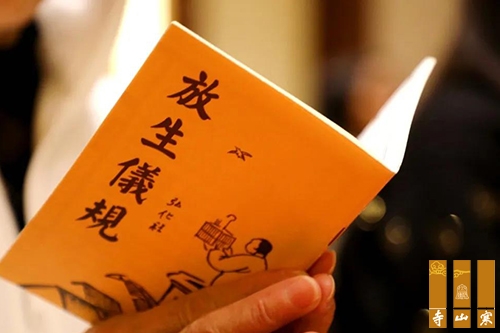 放生儀規
弘化社
寒山寺